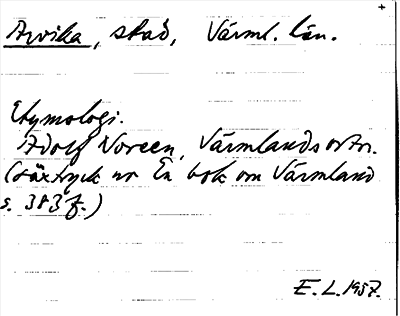 Arvika, stad, Värml. län.
Etymologi.
Adolf Noreen, Värmlands ortn.
(särtryck ur En bok om Värmland
s. 383 f.)
E. L. 1957.